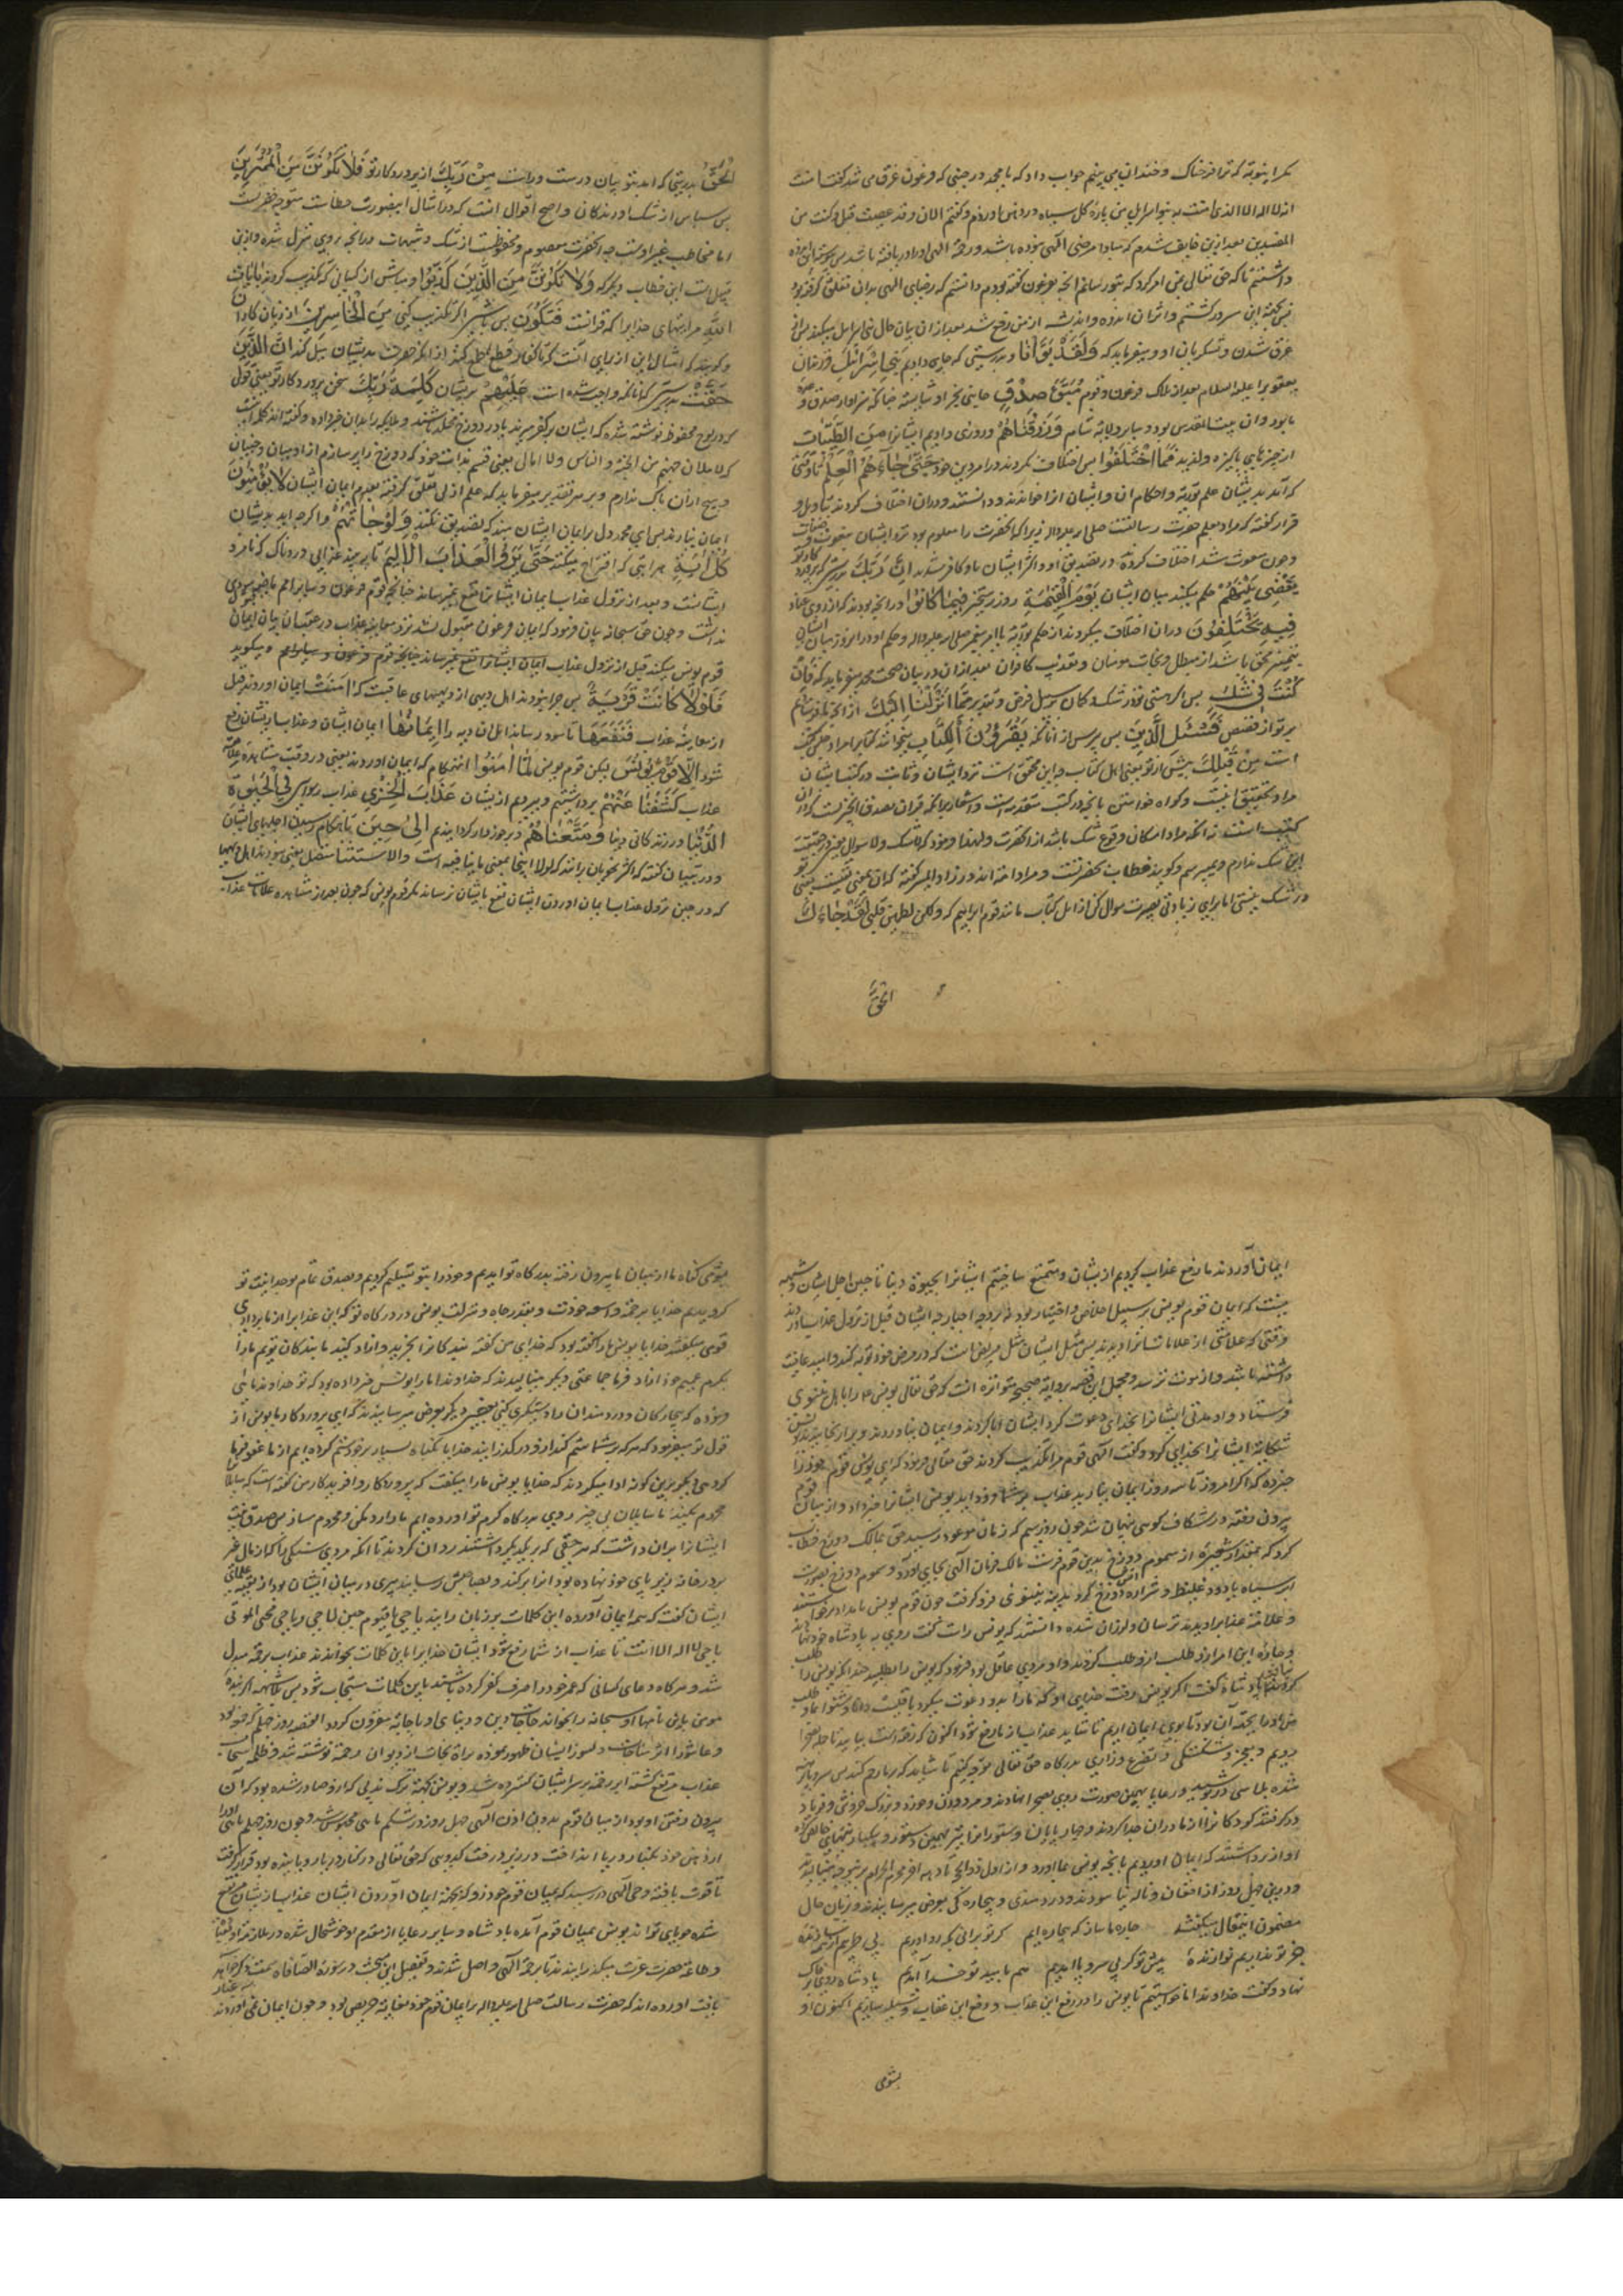 مکر اینوبة که ترا فرحناک و خندان می بینم جواب داد که یا محمد در حینی که فرعون غرق می شد گفت امنت
انه لا اله الا الذی امنت به بنوا اسرائیل من پارۀ گل سیاه در دهنش اوردم و گفتم الان وقد عصیت قبل و کنت من
المفسدین بعد ازین خایف شدم که مبادا مرضی الهی نبوده باشد و رحمة الهی او را دریافته باشد
داشتم تا که حق تعالی بمن امر کرد که بتو رسانم انچه بفرعون گفته بودم دانستم که رضای الهی بدان تعلق گرفته بود
من بجهة این مسرور گشتم و اثر ان اندوه و اندیشه از من رفع شد بعد از ان بیان حال بنی اسرائیل میکند پس از
غرق شدن و لشکریان او و میفرماید که وَلَقَدْ بَوَّأْنَا و بدرستی که جای دادیم بَنِي إِسْرَائِيلَ فرزندان
یعقوب را علیه السلام بعد از هلاک فرعون و قوم مُبَوَّأَ صِدْقٍ جای نیکو و شایسته
با بود و ان بیت المقدس بود و سایر ولایة شام وَرَزَقْنَاهُمْ و روزی دادیم ایشانرا مِنَ الطَّيِّبَاتِ
از چیزهای پاکیزه و لذیذ فَمَا اخْتَلَفُوا پس اختلاف نکردند در امر دین خود حَتَّى جَاءَهُمُ الْعِلْمُ تا وقتی
که آمد بدیشان علم توریة و احکام ان و ایشان انرا خواندند و دانستند و دران اختلاف کردند بتاویل و
قرار گفته که مراد بعلم حضرت رسالتست صلی الله علیه واله زیرا که انحضرت را معلوم بود نزد ایشان بنعوت و صفات
و چون مبعوث شد اختلاف کردند در تصدیق او و اکثر ایشان باو کافر شدند إِنَّ رَبَّكَ بدرستی که پروردکار تو
يَقْضِي بَيْنَهُمْ حکم میکند میان ایشان يَوْمَ الْقِيٰمَةِ روز رستخیز فِيمَا كَانُوا در انچه بودند که از روی عناد
فِيهِ يَخْتَلِفُونَ دران اختلاف میکردند از حکم توریة یا امر پیغمبر صلی الله علیه واله و حکم او در انروز میان ایشان
بتمییز محق باشد از مبطل و نجات مومنان و تعذیب کافران بعد ازان در بیان صحت محمد میفرماید که فَإِنْ
كُنْتَ فِي شَكٍّ پس اگر هستی تو در شک و کمان بر سبیل فرض و تقدیر مِمَّا أَنْزَلْنَا إِلَيْكَ از انچه فرستادیم
بر تو از قصص فَسْئَلِ الَّذِينَ پس پرس از آنانکه يَقْرَؤُنَ الْكِتَابَ میخوانند کتابرا مراد جنس کتب
است مِنْ قَبْلِكَ پیش از تو یعنی اهل کتاب چه این محقق است نزد ایشان و ثابت در کتب ایشان
مراد تحقیق اینست و کواه خواستن بانچه در کتب متقدمه است و اشعار برانکه قران مصدق انچیزست که دران
کتب است نه انکه مراد امکان وقوع شک باشد از انحضرت ولهذا فرمود که لا اشک ولا اسال یعنی در حقیقت
این شک ندارم و نمیپرسم و کویند خطاب بحضرتست و مراد امة اند و زاد المسیر کفته که ان بمعنی نیست یعنی تو
در شک نیستی اما برای زیادتی بصیرت سوال کن از اهل کتاب مانند قوم ابراهیم که ولکن لیطمئن قلبی لَقَدْ جَاءَكَ
الْحَقُّ
الْحَقُّ بدرستی که امد بتو بیان درست و راست مِنْ رَبِّكَ از پروردکار تو فَلَا تَكُونَنَّ مِنَ الْمُمْتَرِينَ
پس مباش از شک اورندکان و اصح اقوال انست که در امثال اینصورت خطاب متوجه حضرتست
اما مخاطب غیر اوست چه انحضرت معصوم و محفوظست از شک و شبهات در انچه بروی منزل شده و ازین
قبیل است این خطاب دیگر که وَلَا تَكُونَنَّ مِنَ الَّذِينَ كَذَّبُوا و مباش از کسانی که تکذیب کردند بِآيَاتِ
اللَّهِ مر ایتهای خدایرا که قرانست فَتَكُونَ پس باشی اگر تکذیب کنی مِنَ الْخَاسِرِينَ از زیان کاران
و کویند که امثال این از برای انست که تا کفار قطع طمع کنند از انحضرت إِنَّ الَّذِينَ
حَقَّتْ بدرستی که آنانکه واجب شده است عَلَيْهِمْ بریشان كَلِمَتُ رَبِّكَ سخن پروردکار تو یعنی قول
که در لوح محفوظ نوشته شده که ایشان بر کفر میرند یا در دوزخ مخلد باشند و ملایکه را بدان خبر داده و گفته اند کلمه انست
که لاملان جهنم من الجنة والناس ولا ابالی یعنی قسم بذات خود که دوزخ را پر سازم از ادمیان و جنیان
و هیچ از ان باک ندارم و بر هر تقدیر میفرماید که علم ازلی تعلق گرفته بعدم ایمان ایشان لَا يُؤْمِنُونَ
ایمان نیارند پس ای محمد دل بر ایمان ایشان مبند که تصدیق نکنند وَلَوْ جَاءَتْهُمْ و اگرچه اید بدیشان
كُلُّ آيَةٍ هر ایتی که اقتراح میکنند حَتَّى يَرَوُا الْعَذَابَ الْأَلِيمَ تا ببینند عذابی دردناک که نامزد
ایشانست و بعد از نزول عذاب ایمان ایشانرا نفع نمیرساند چنانچه قوم فرعون و سایر امم ماضیه را سودی
نداشت و چون حق سبحانه بیان فرمود که ایمان فرعون مقبول نشد نزد معاینه عذاب در عقب ان بیان ایمان
قوم یونس میکند قبل از نزول عذاب ایمان ایشانرا نفع نمیرساند چنانچه قوم فرعون و سایر امم و میکوید
فَلَوْلَا كَانَتْ قَرْيَةٌ پس چرا نبودند اهل دیهی از دیههای عاقبت که آمَنَتْ ایمان اوردند قبل
از معاینه عذاب فَنَفَعَهَا تا سود رساند اهل ان دیه را إِيمَانُهَا ایمان ایشان و عذاب ازیشان دفع
شود إِلَّا قَوْمَ يُونُسَ لیکن قوم یونس لَمَّا آمَنُوا انهنکام که ایمان اوردند یعنی در وقت مشاهده علامة
عذاب كَشَفْنَا عَنْهُمْ برداشتیم و ببردیم ازیشان عَذَابَ الْخِزْيِ عذاب رسوایی فِي الْحَيٰوةِ
الدُّنْيَا در زندکانی دنیا وَمَتَّعْنَاهُمْ و برخوردار کردانیدیم إِلَى حِينٍ تا هنکام رسیدن اجلهای ایشان
و در تبیان گفته که اکثر نحویان برانند که لولا اینجا بمعنی ما نافیه است و الا استثنا متصل یعنی سود ندارد اهل دیهها
که در حین نزول عذاب ایمان اوردن ایشان نفع بایشان نرساند مکر قوم یونس که چون بعد از مشاهده علامات عذاب
ایمان آوردند ما رفع عذاب کردیم ازیشان و متمتع ساختیم ایشانرا بحیوة دنیا تا حین اجل ایشان و شبهه
نیست که ایمان قوم یونس بر سبیل اخلاص و اختیار بود نه بر وجه اجبار چه ایشان قبل از نزول عذاب
وقتی که علامتی از علامات انرا دیدند پس مثل ایشان مثل مریض است که در مرض خود توبه کند و امید عافیت
داشته باشد و از موت ترسد و مجمل این قصه بروایة صحیحه متواتره انست که حق تعالی یونس را باهل نینوی
فرستاد و او مدتی ایشانرا بخدای دعوت کرد ایشان ابا کردند و ایمان نیاوردند و
شکایة ایشانرا بخدای کرد و گفت الهی قوم مرا تکذیب کردند حق تعالی فرمود که ای یونس قوم خود را
خبر ده که اگر امروز تا سه روز ایمان نیارید عذاب بر شما فرود اید یونس ایشانرا خبر داد و از میان قوم
بیرون رفته در شکاف کوهی پنهان شد چون روز سیم که زمان موعود رسید حق بمالک دوزخ خطاب
کرد که بمقدار شعیرۀ از سموم دوزخ بدین قوم فرست مالک فرمان الهی بجای آورد و سموم دوزخ بصورت
ابر سیاه با دود غلیظ و شرارۀ آتش دوزخ کرد مدینه نینوی فرو گرفت چون قوم یونس بامداد برخاستند
و علامة عذابرا دیدند ترسان و لرزان شده دانستند که یونس راست گفت روی به پادشاه خود نهاده
و چارۀ این امر ازو طلب کردند و او مردی عاقل بود فرمود که یونس را بطلبید چندانکه یونس را طلب
کردند نیافتند پادشاه گفت اگر یونس رفت خدایی او که ما را بدو دعوت میکرد باقیست دانا و شنوا
ایمان اریم تا شاید عذاب از ما رفع شود اکنون که رفته است بیایید تا جمله بصحرا
رویم و بعجز و شکستکی و تضرع و زاری بدرکاه حق تعالی توجه کنیم تا شاید که بر ما رحم کند پس سر و پا برهنه
شده پلاسی در پوشیده و رعایا بهمین صورت روی بصحرا نهادند و مرد و زن و خورد و بزرک خروش و فریاد
در گرفتند کودکانرا از مادران جدا کردند
اواز برداشتند که ایمان اوردیم بانچه یونس بما اورد و از اول ذوالحجة تا دهم محرم الحرام
و درین چهل روز از افغان و ناله نیاسودند و درد مندی و بیچاره کی بعرض میرسانیدند و بزبان حال
مضمون اینمقال میگفتند چاره ما ساز که بیچاره ایم کر تو برانی بکه رو اوریم
جز تو نداریم نوازندۀ پیش تو گر بی سر و پا امدیم هم بامید تو خدا آمدیم پادشاه روی بر خاک
نهاد و گفت خداوندا ما خواستیم تا یونس را در رفع این عذاب و دفع این عقاب وسیله سازیم اکنون او
بشومی
بشومی گناه ما از میان ما بیرون رفته بدرکاه تو امدیم و خود را بتو تسلیم کردیم و بصدق تمام بوحدانیت تو
کرویدیم خدایا برحمة واسعه خودت و بقدر جاه و منزلت یونس در درکاه تو که این عذابرا از ما برداری
قومی میگفتند خدایا یونس ما را گفته بود که خدای من گفته بندکانرا بخرید و ازاد کنید ما بندکان توییم ما را
بکرم عمیم خود ازاد فرما جماعتی دیگر مینالیدند که خداوندا ما را یونس خبر داده بود که تو خداوندا
فرمودۀ که بیچارکان و درمندان را دستگیری کنی بعضی دیگر بعرض میرسانیدند که ای پروردکار ما یونس از
قول تو میفرمود که هر که بر شما ستم کند ازو درگذرانید خدایا بگناه بسیار بر خود ستم کرده ایم از ما عفو فرما
گروهی دیگر برین گونه ادا میکردند که خدایا یونس ما را میگفت که پروردکار و افریدکار من گفته است که سایلانرا
محروم مکنید ما سایلان بی چیز روی بدرکاه کرم تو اورده ایم ما را رد مکن و محروم مساز پس صدق نیت
ایشانرا بران داشت که هر حقی که بر یکدیگر داشتند رد ان کردند تا انکه مردی سنکی را که از مال غیر
بر در خانه زیر پای خود نهاده بود انرا بر کند و بصاحبش رسانید پیری در میان ایشان بود از بقیه علمای
ایشان گفت که همه ایمان آورده این کلمات بر زبان رانید یا حی یا قیوم حین لا حی و یا حی محی الموتی
یا حی لا اله الا انت تا عذاب از شما رفع شود ایشان خدایرا باین کلمات بخواندند عذاب برحمة مبدل
شد و هر کاه دعای کسانی که عمر خود را صرف کفر کرده باشند باین کلمات مستجاب شود پس شکی نیست که اگر بندۀ
مومن باین نامها او سبحانه را بخواند حاجات دین و دنیای او باجابة مقرون گردد القصه روز چهلم که جمعه بود
و عاشورا اثر مناجات دلسوز ایشان ظهور نموده براة نجات از دیوان رحمة نوشته شد و ظلمة سحاب
عذاب مرتفع گشته ابر رحمة بر سر ایشان گسترده شد و یونس بجهة ترک ندبی که ازو صادر شده بود که آن
بیرون رفتن او بود از میان قوم بدون اذن الهی چهل روز در شکم ماهی محبوس شد و چون روز چهلم ماهی او را
از دهن خود بکنار دریا انداخت در زیر درخت کدویی که حق تعالی در کنار دریا رویانیده بود قرار گرفت
تا قوت یافته وحی آلهی در رسید که بمیان قوم خود رو که بجهة ایمان آوردن ایشان عذاب ازیشان مرتفع
شده جویای تواند یونس بمیان قوم آمده پادشاه و سایر رعایا از مقدم او خوشحال شده در ملازمة او بعبادة
و طاعة حضرت عزت میگذرانیدند تا برحمة الهی واصل شدند و تفصیل این مبحث در سورۀ الصافات سمت ذکر خواهد
یافت اورده اند که حضرت رسالت صلی الله علیه واله بر ایمان قوم خود بغایة حریص بود و چون ایمان نمی آوردند